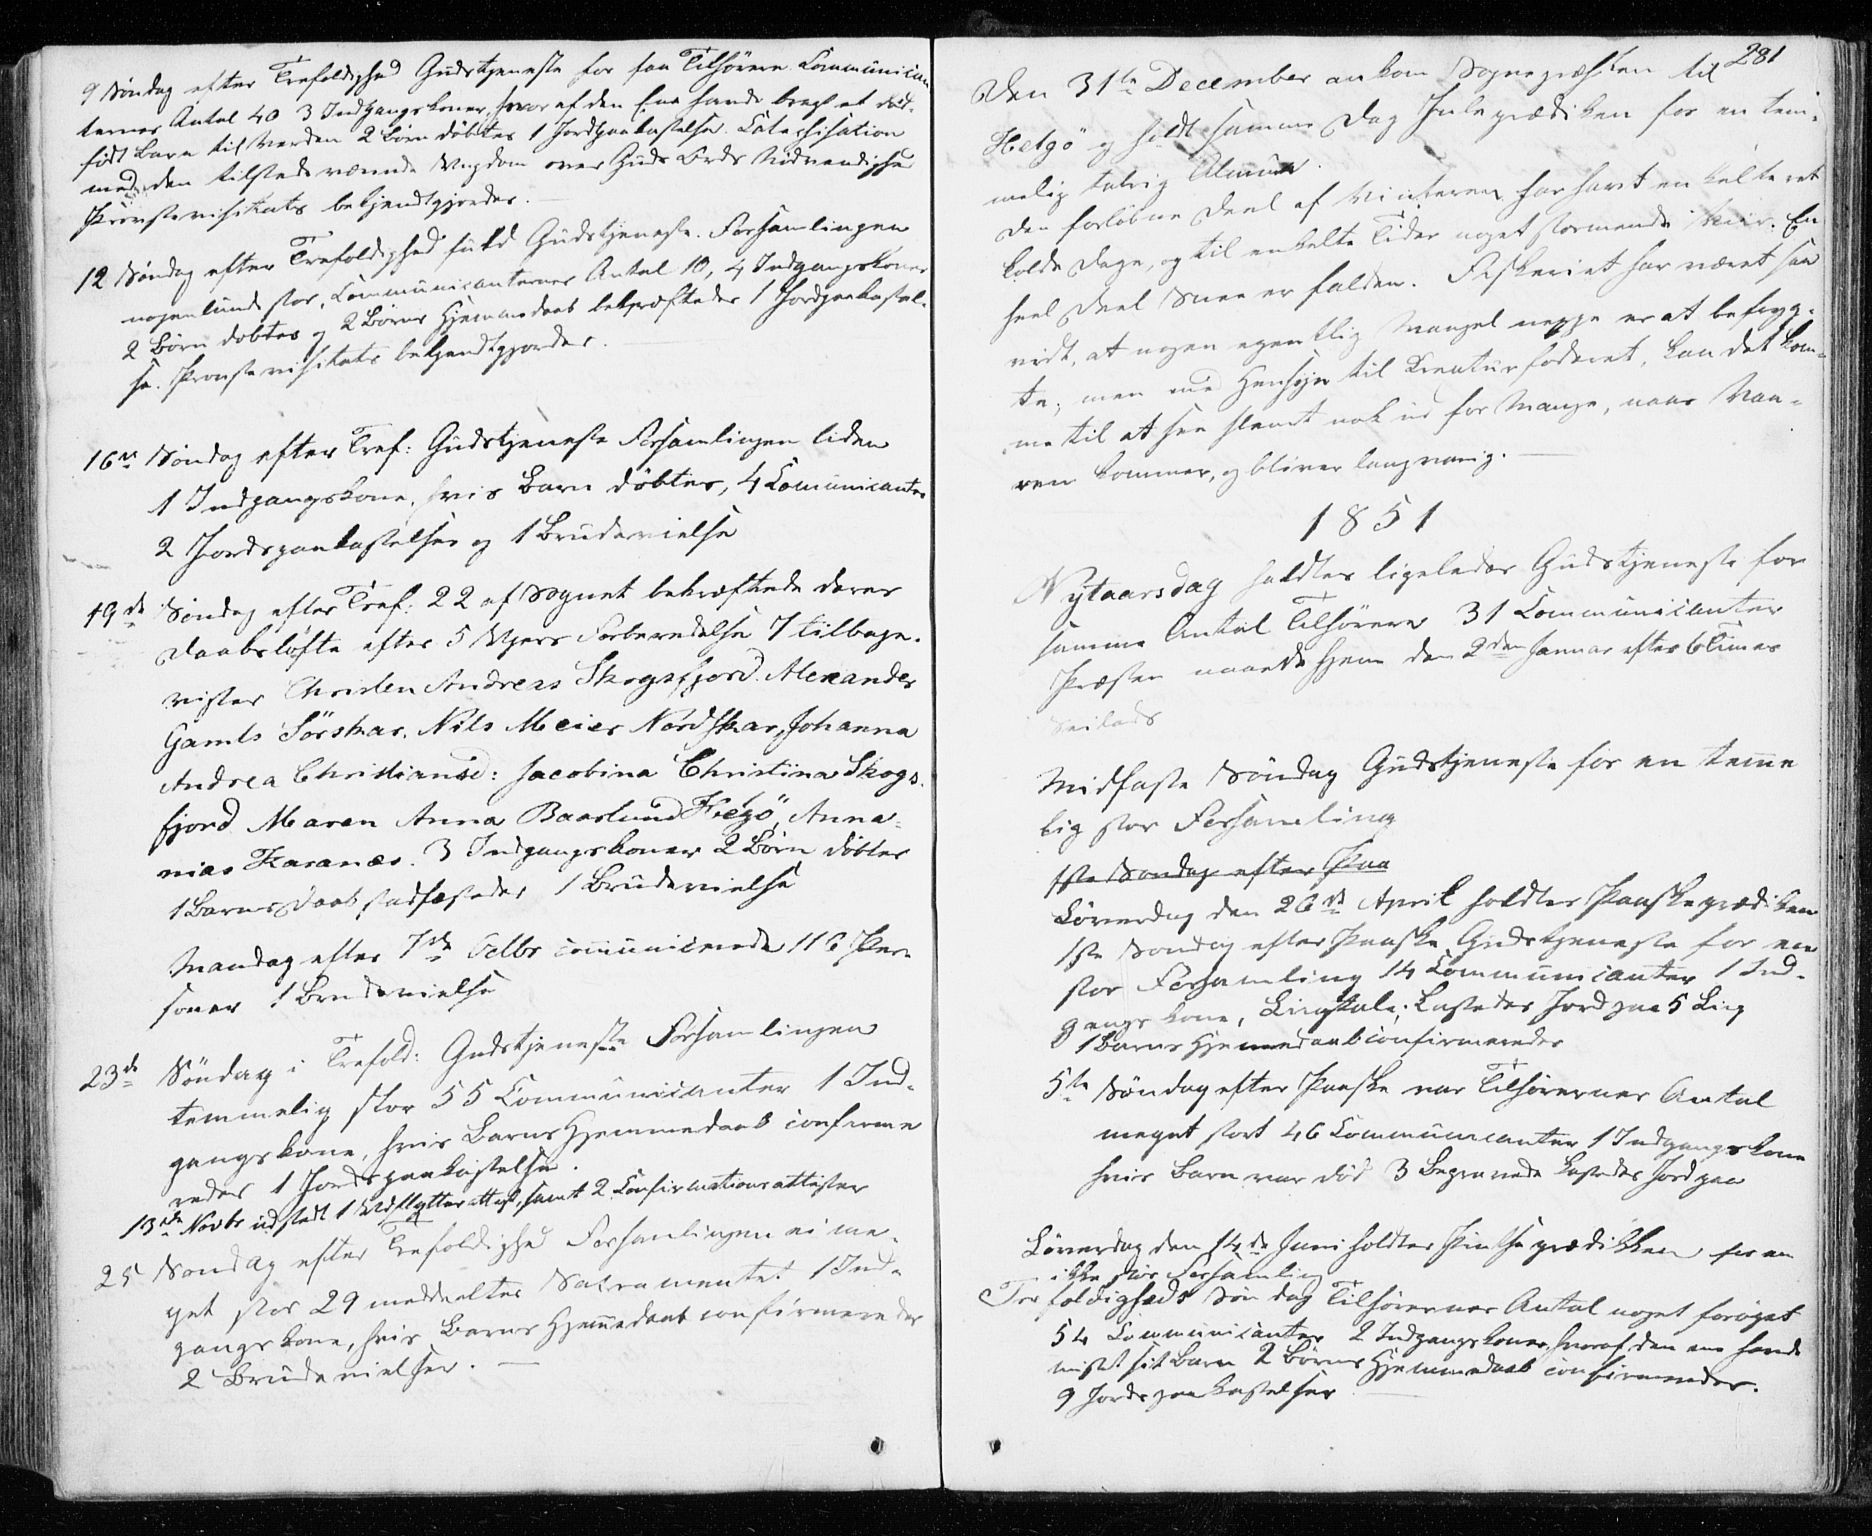 9 Søndag efter Trefoldighed Gudstjeneste for faa Tilhørere Communican
ternes Antal 40 3 Indgangskoner, hvoraf den Ene havde bragt et død-
født Barn til Verden 2 Børn døbtes 1 Jordpaakastelse. Catechisation
med den tilstedeværende Ungdom over Guds Ords Nødvendighed
Provstevisitats bekjendtgjordes.
12 Søndag efter Trefoldighed holdt Gudstjeneste. Forsamlingen
nogenlunde stor, Communicanternes Antal 10, 4 Indgangskoner
2 Børn døbtes og 2 Børns Hjemmedaab bekræftedes 1 Jordpaakastel-
se. Provstevisitats bekjendtgjordes.
16de Søndag efter Tref: Gudstjeneste Forsamlingen liden
1 Indgangskone, hvis Barn døbtes, 4 Communicanter
2 Jordspaakastelser og 1 Brudevielse
19de Søndag efter Tref: 22 af Sognet bekræftede deres
Daabsløfte efter 5 Ugers Forberedelse 7 tilbage-
vistes Christen Andreas Skogsfjord. Alexander
Gamls Sörskar. Nils Meier Nordskar, Johanna
Andrea Christiansd: Jacobina Christina Skogs-
fjord Maren Anna Baarlund Helgö, Anna-
nias Karanæs. 3 Indgangskoner 2 Børn døbtes
1 Barns Daab stadfæstedes 1 Brudevielse
Mandag efter 7de Octbr communicerede 116 Per-
soner 1 Brudevielse
23de Søndag i Trefold: Gudstjeneste Forsamlingen
temmelig stor 55 Communicanter 1 Ind-
gangskone, hvis Barns Hjemmedaab confirme
redes 1 Jordspaakastelse.
13de Novbr udstedt 1 Udflytterattest, samt 2 Confirmationsattester
25 Søndag efter Trefoldighed Forsamlingen ei me-
get stor 29 meddeeltes Sacramentet 1 Ind-
gangskone, hvis Barns Hjemmedaab confirmeredes
2 Brudevielser.
281
Den 31te December ankom Sognepræsten til
Helgö og holdt samme Dag Julepræediken for en tem-
melig talrig Almue.
Den forløbne Deel af Vinteren har havt en Deel
kolde Dage, og til enkelte Tider noget stormende Veir. En
heel Deel Snee er falden. Fiskeriet har været saa
vidt, at nogen egentlig Mangel neppe er at befryg-
te, men med Hensyn til Kreaturfoderet, kan det kom-
me til at see slemt nok ud for Mange, naar Vaa-
ren kommer, og bliver langvarig.
1851
Nytaarsdag holdtes ligeledes Gudstjeneste for
samme Antal Tilhørere 31 Communicanter
Præsten naaede hjem den 2den Januar efter 6 Timers
Seilads
Midfaste Søndag Gudstjeneste for en temme
lig stor Forsamling
1ste Søndag efter Paa
Løverdag den 26de April holdtes Paaskeprædiken
1ste Søndag efter Paaske Gudstjeneste for en
stor Forsamling 14 Communicanter 1 Ind-
gangskone, Liigtale; kastedes Jord paa 5 Liig
1 Barns Hjemmedaab confirmeredes
5te Søndag efter Paaske var Tilhørernes Antal
meget stort 46 Communicanter 1 Indgangskone
hvis Barn var død 3 Begravede kastedes Jord paa
Løverdag den 14de Juni holdtes Pintseprædikken for en
ikke stor Forsamling
Trefoldigheds Søndag Tilhørernes Antal noget forøget
54 Communicanter 2 Indgangskoner, hvoraf den ene havde
mistet sit Barn 2 Børns Hjemmedaab confirmeredes.
9 Jordspaakastelser